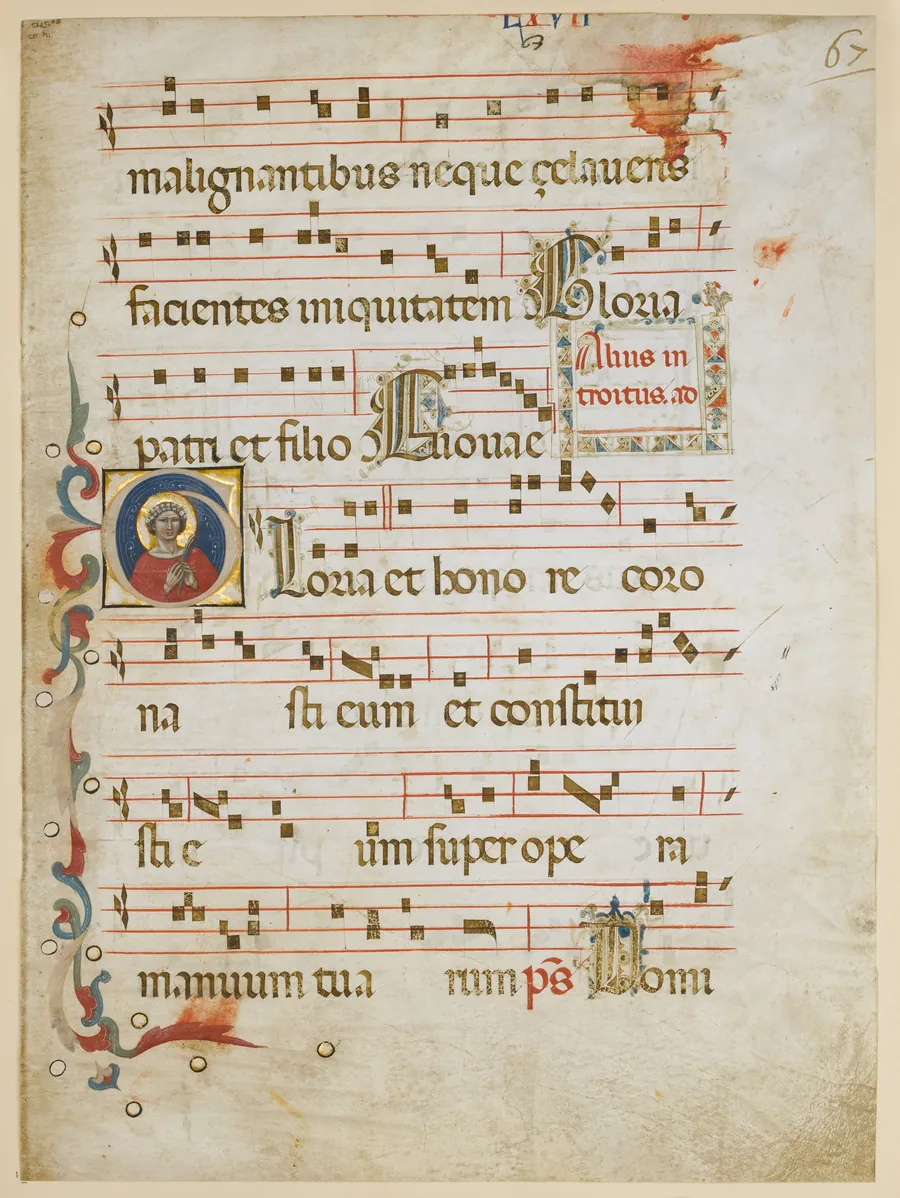 LXVII
67
malignantibus neque çelaueris
facientes iniquitatem Gloria
Alius in
troitus. ad
patri et filio Euouae
GLoria et hono re coro
na sti eum et constitui
sti e um super ope ra
manuum tua rum p̄s Domi